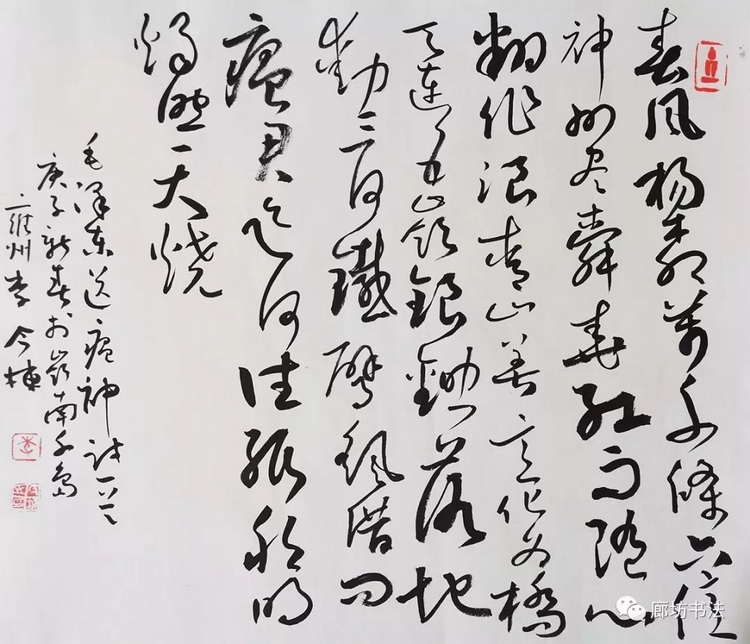 春风杨柳萬千條六億
神州尽舜尧红雨随心
翻作浪青山着意化为橋
天连五岭銀鋤落地
動三河鐵臂摇借问
瘟君欲何往纸船明
烛照天烧
毛泽东送瘟神诗
庚子新春于岭南千岛
州李今栋
廊坊书法